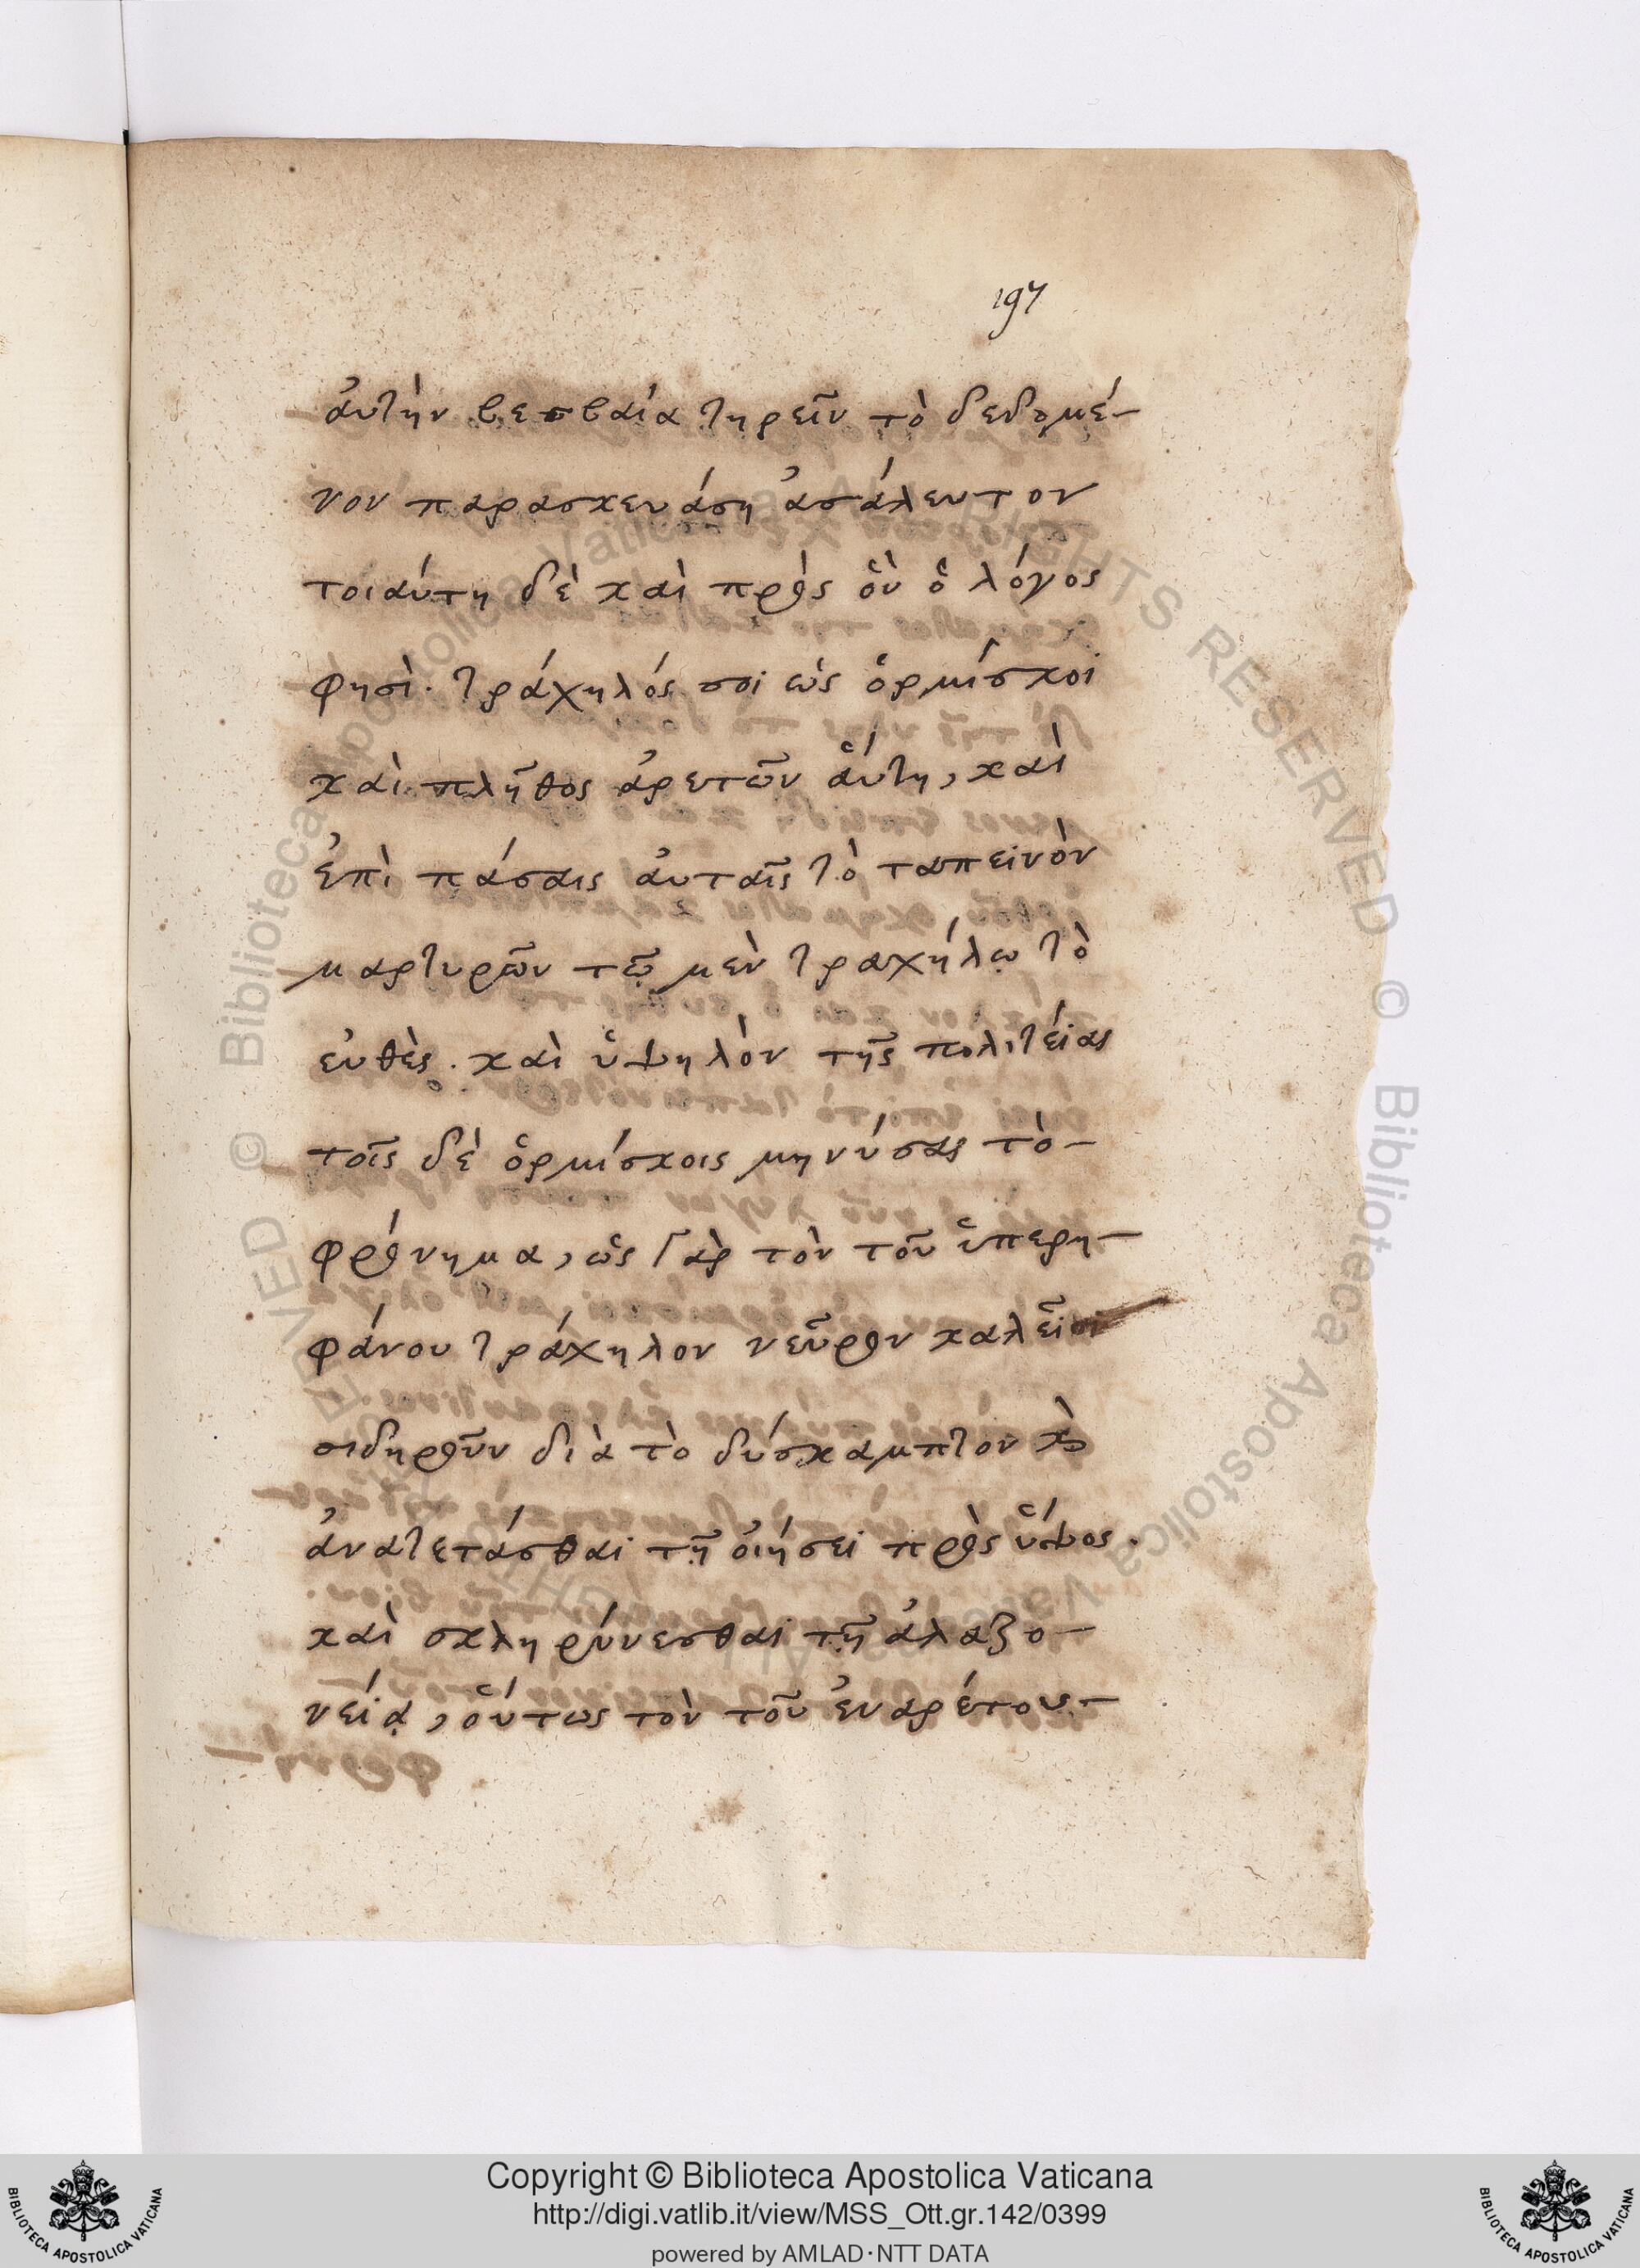 197
ἀυτὴν βεβαία τηρεῖν τὸ δεδομέ-
νον παρασκευάση ἀσάλευτον
τοιαύτη δὲ καὶ πρὸς ὃν ὁ λόγος
φησὶ. τράχηλός σοι ὡς ὁρμίσκοι
καὶ πλῆθος ἀρετῶν ἅυτη, καὶ
ἐπὶ πάσαις ἀυταῖς τὸ ταπεινὸν
μαρτυρῶν τῷ μὲν τραχήλῳ τὸ
ευθὲς. καὶ ὑψηλὸν τῆς πολιτείας
τοῖς δὲ ὁρμίσκοις μηνύσας τὸ-
φρόνημα, ὡς γὰρ τὸν τοῦ ὑπερη-
φάνου τράχηλον νεῦρον καλεῖ
σιδηροῦν διὰ τὸ δύσκαμπτον κὸ
ἀνατετάσθαι τῇ ὀιήσει πρὸς ὕψος.
καὶ σκληρύνεσθαι τῇ ἀλαζο-
νείᾳ, ὅυτως τὸν τοῦ ἐναρέτου-
Copyright © Biblioteca Apostolica Vaticana
http://digi.vatlib.it/view/MSS_Ott.gr.142/0399
powered by AMLAD·NTT DATA
BIBLIOTECA APOSTOLICA VATICANA
BIBLIOTECA APOSTOLICA VATICANA